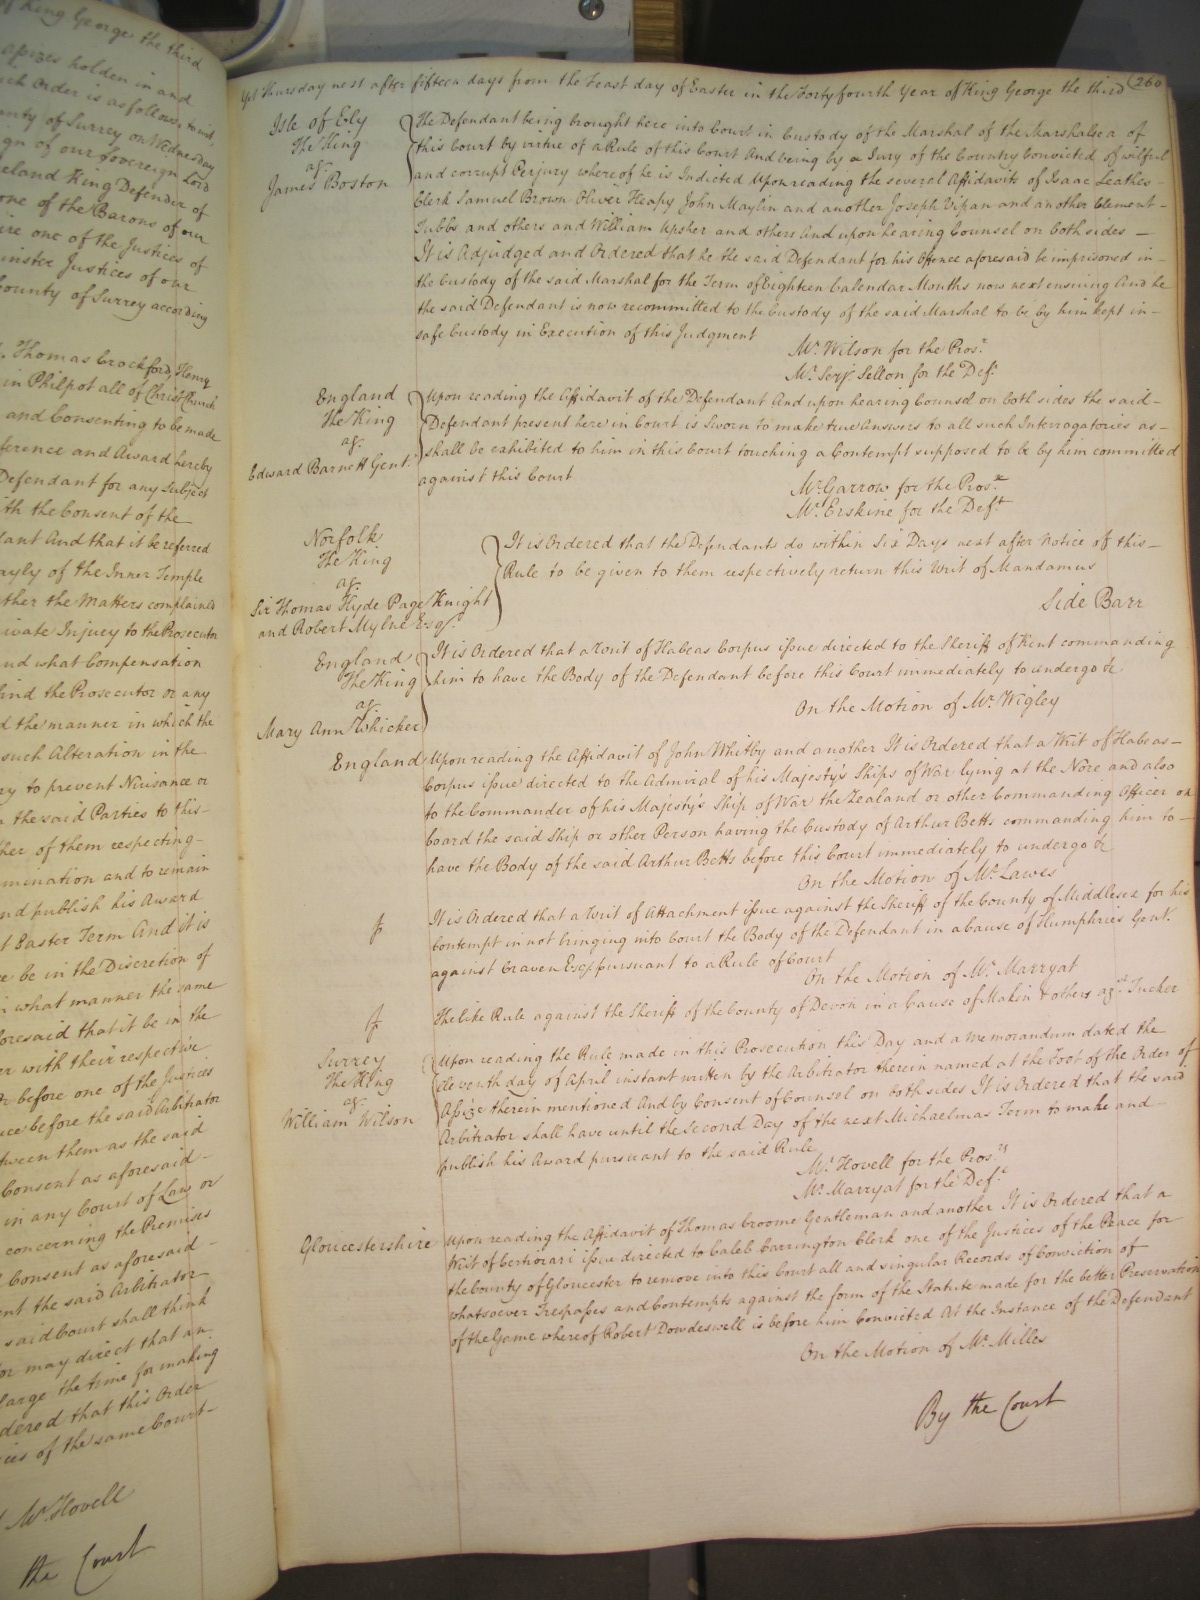 of King George the third
Assizes holden in and
such Order is as follows, to wit,
County of Surrey on Wednesday
Reign of our Sovereign Lord
Ireland King Defender of
one of the Barons of our
one of the Justices of
Justices of our
County of Surrey according
Thomas Crockford, Henry
in Philpot all of Christ Church
and Consenting to be made
and Award hereby
Defendant for any Subject
with the Consent of the
And that it be referred
of the Inner Temple
the Matters complained
private Injury to the Prosecutor
and what Compensation
find the Prosecutor or any
the manner in which the
such Alteration in the
to prevent Nuisance or
the said Parties to this-
of them respecting-
and to remain
and publish his Award
Easter Term And it is
be in the Discretion of
in what manner the same
aforesaid that it be in the
with their respective
before one of the Justices
before the said Arbitrator
between them as the said
Consent as aforesaid-
in any Court of Law or
concerning the Premises
Consent as aforesaid-
the said Arbitrator
said Court shall think
or may direct that an
enlarge the time for making
Ordered that this Order
of the same Court-
Mr. Hovell
the Court
Yet Thursday next after fifteen days from the Feast day of Easter in the Forty fourth Year of King George the third (260
Isle of Ely
The King
agt.
James Boston
The Defendant being brought here into Court in Custody of the Marshal of the Marshalsea of
this Court by virtue of a Rule of this Court And being by a Jury of the Country Convicted of wilful
and corrupt Perjury whereof he is Indicted Upon reading the several Affidavits of Isaac Leathes-
Clerk Samuel Brown Oliver Heapy John Maylin and another Joseph Vipan and another Clement-
Tubbs and others and William Apsher and others And upon hearing Counsel on both sides —
It is Adjudged and Ordered that he the said Defendant for his Offence aforesaid be imprisoned in-
the Custody of the said Marshal for the Term of Eighteen Calendar Months now next ensuing And he
the said Defendant is now recommitted to the Custody of the said Marshal to be by him kept in-
safe Custody in Execution of this Judgment
Mr. Wilson for the Prosr.
Mr. Serjt. Sellon for the Deft.
England
The King
agt.
Edward Barnett Gent.
Upon reading the Affidavit of the Defendant And upon hearing Counsel on both sides the said-
Defendant present here in Court is Sworn to make true Answers to all such Interrogatories as-
shall be exhibited to him in this Court touching a Contempt supposed to be by him committed
against this Court
Mr. Garrow for the Prosr.
Mr. Erskine for the Deft.
Norfolk
The King
agt.
Sir Thomas Hyde Page Knight
and Robert Mylne Esqr.
It is Ordered that the Defendants do within Six Days next after Notice of this-
Rule to be given to them respectively return this Writ of Mandamus
Side Barr
England
The King
agt.
Mary Ann Whicker
It is Ordered that a Writ of Habeas Corpus issue directed to the Sheriff of Kent commanding
him to have the Body of the Defendant before this Court immediately to undergo &c
On the Motion of Mr. Wigley
England
Upon reading the Affidavit of John Whitby and another It is Ordered that a Writ of Habeas-
Corpus issue directed to the Admiral of his Majesty's Ships of War lying at the Nore and also
to the Commander of his Majesty's Ship of War the Zealand or other Commanding Officer on
board the said Ship or other Person having the Custody of Arthur Betts commanding him to-
have the Body of the said Arthur Betts before this Court immediately to undergo &c
On the Motion of Mr. Lawes
It is Ordered that a Writ of Attachment issue against the Sheriff of the County of Middlesex for his
Contempt in not bringing into Court the Body of the Defendant in a Cause of Humphries Gent.
against Craven Esqr. pursuant to a Rule of Court
On the Motion of Mr. Marryat
The like Rule against the Sheriff of the County of Devon in a Cause of Makin & others agst. Tucker
Surrey
The King
agt.
William Wilson
Upon reading the Rule made in this Prosecution this Day and a Memorandum dated the
eleventh day of April instant written by the Arbitrator therein named at the Foot of the Order of
Assize therein mentioned And by Consent of Counsel on both sides It is Ordered that the said
Arbitrator shall have until the Second Day of the next Michaelmas Term to make and-
publish his Award pursuant to the said Rule
Mr. Hovell for the Prosrs
Mr. Marryat for the Deft.
Gloucestershire
Upon reading the Affidavit of Thomas broome Gentleman and another It is Ordered that a
Writ of Certiorari issue directed to Caleb Carrington Clerk one of the Justices of the Peace for
the County of Gloucester to remove into this Court all and singular Records of Conviction of
whatsoever Trespasses and Contempts against the form of the Statute made for the better Preservation
of the Game whereof Robert Dowdeswell is before him Convicted At the Instance of the Defendant
On the Motion of Mr. Milles
By the Court